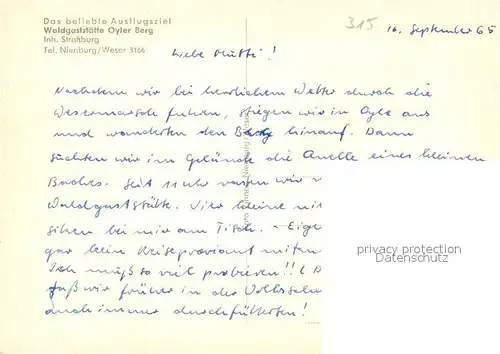 Das beliebte Ausflugsziel
Waldgaststätte Oyler Berg
Inh. Straßburg
Tel. Nienburg/Weser 3166
315
16. September 65
Liebe Mutti!
Nachdem wir bei herrlichem Wetter durch die
Wesermarsch fuhren, stiegen wir in Oyle aus
und wanderten den Berg hinauf. Dann
suchten wir im Gelände die Quelle eines kleinen
Baches. Seit 11 Uhr waren wir
Waldgaststätte. Vier kleine
sitzen bei mir am Tisch. - Eige
gar kein Reiseproviant
Ich muß so viel probieren!!
daß wir früher in der Volksschule
auch immer durchfütterten!
privacy protection
Datenschutz